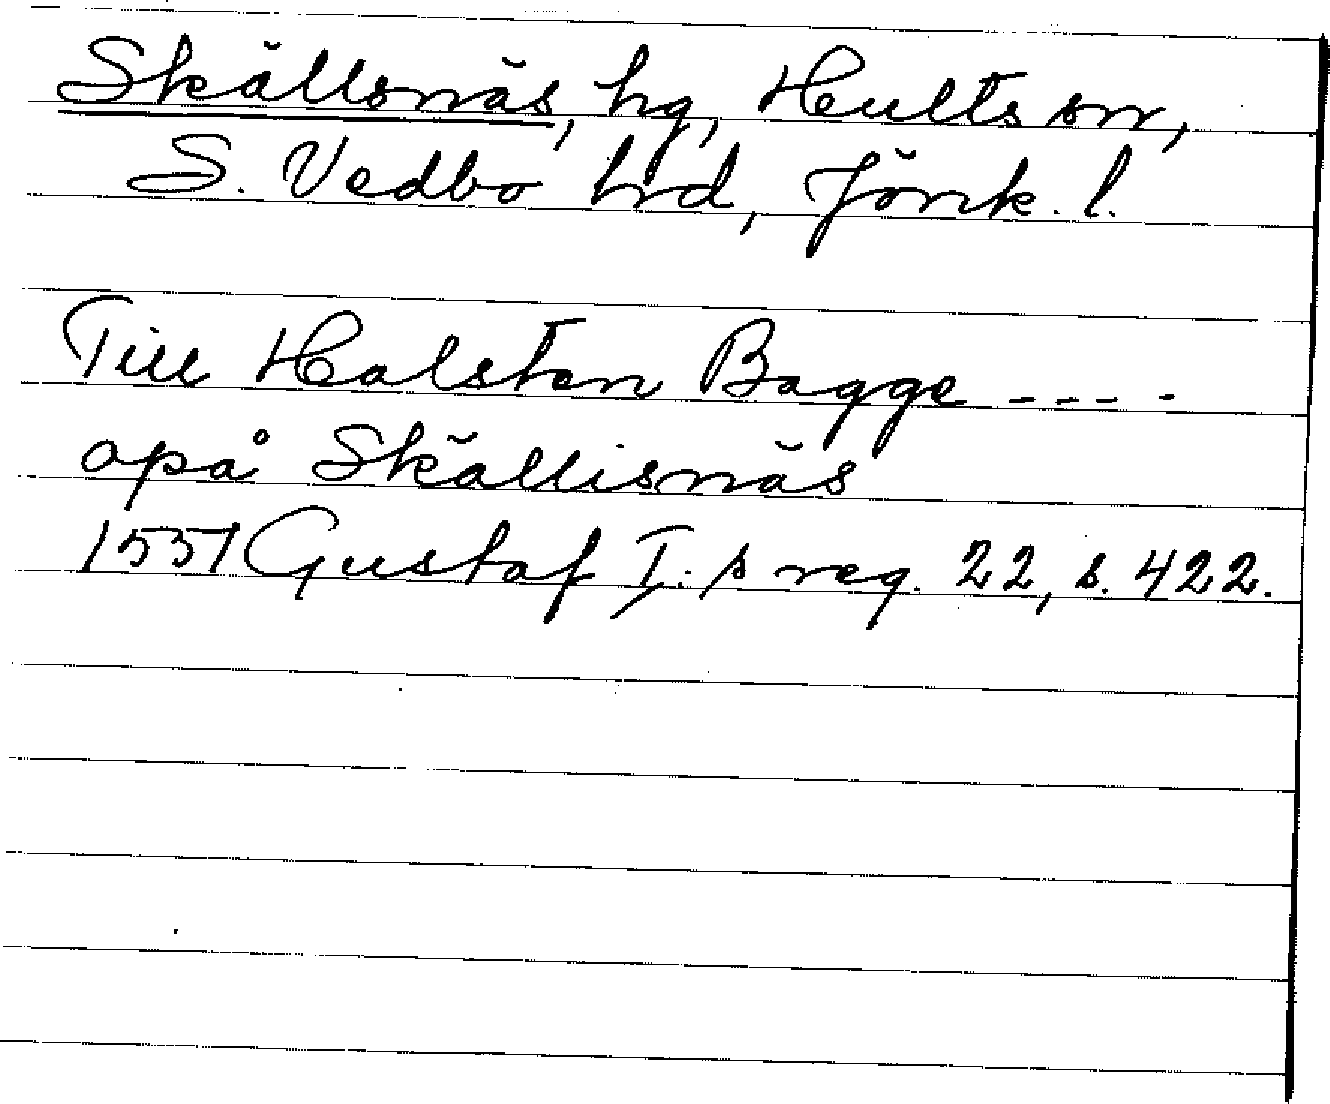 Skällsnäs, hg, Hults sn,
S. Vedbo hrd, Jönk. l.
Till Halsten Bagge - - - -
opå Skällisnäs
1551 Gustaf I:s reg. 22, s. 422.